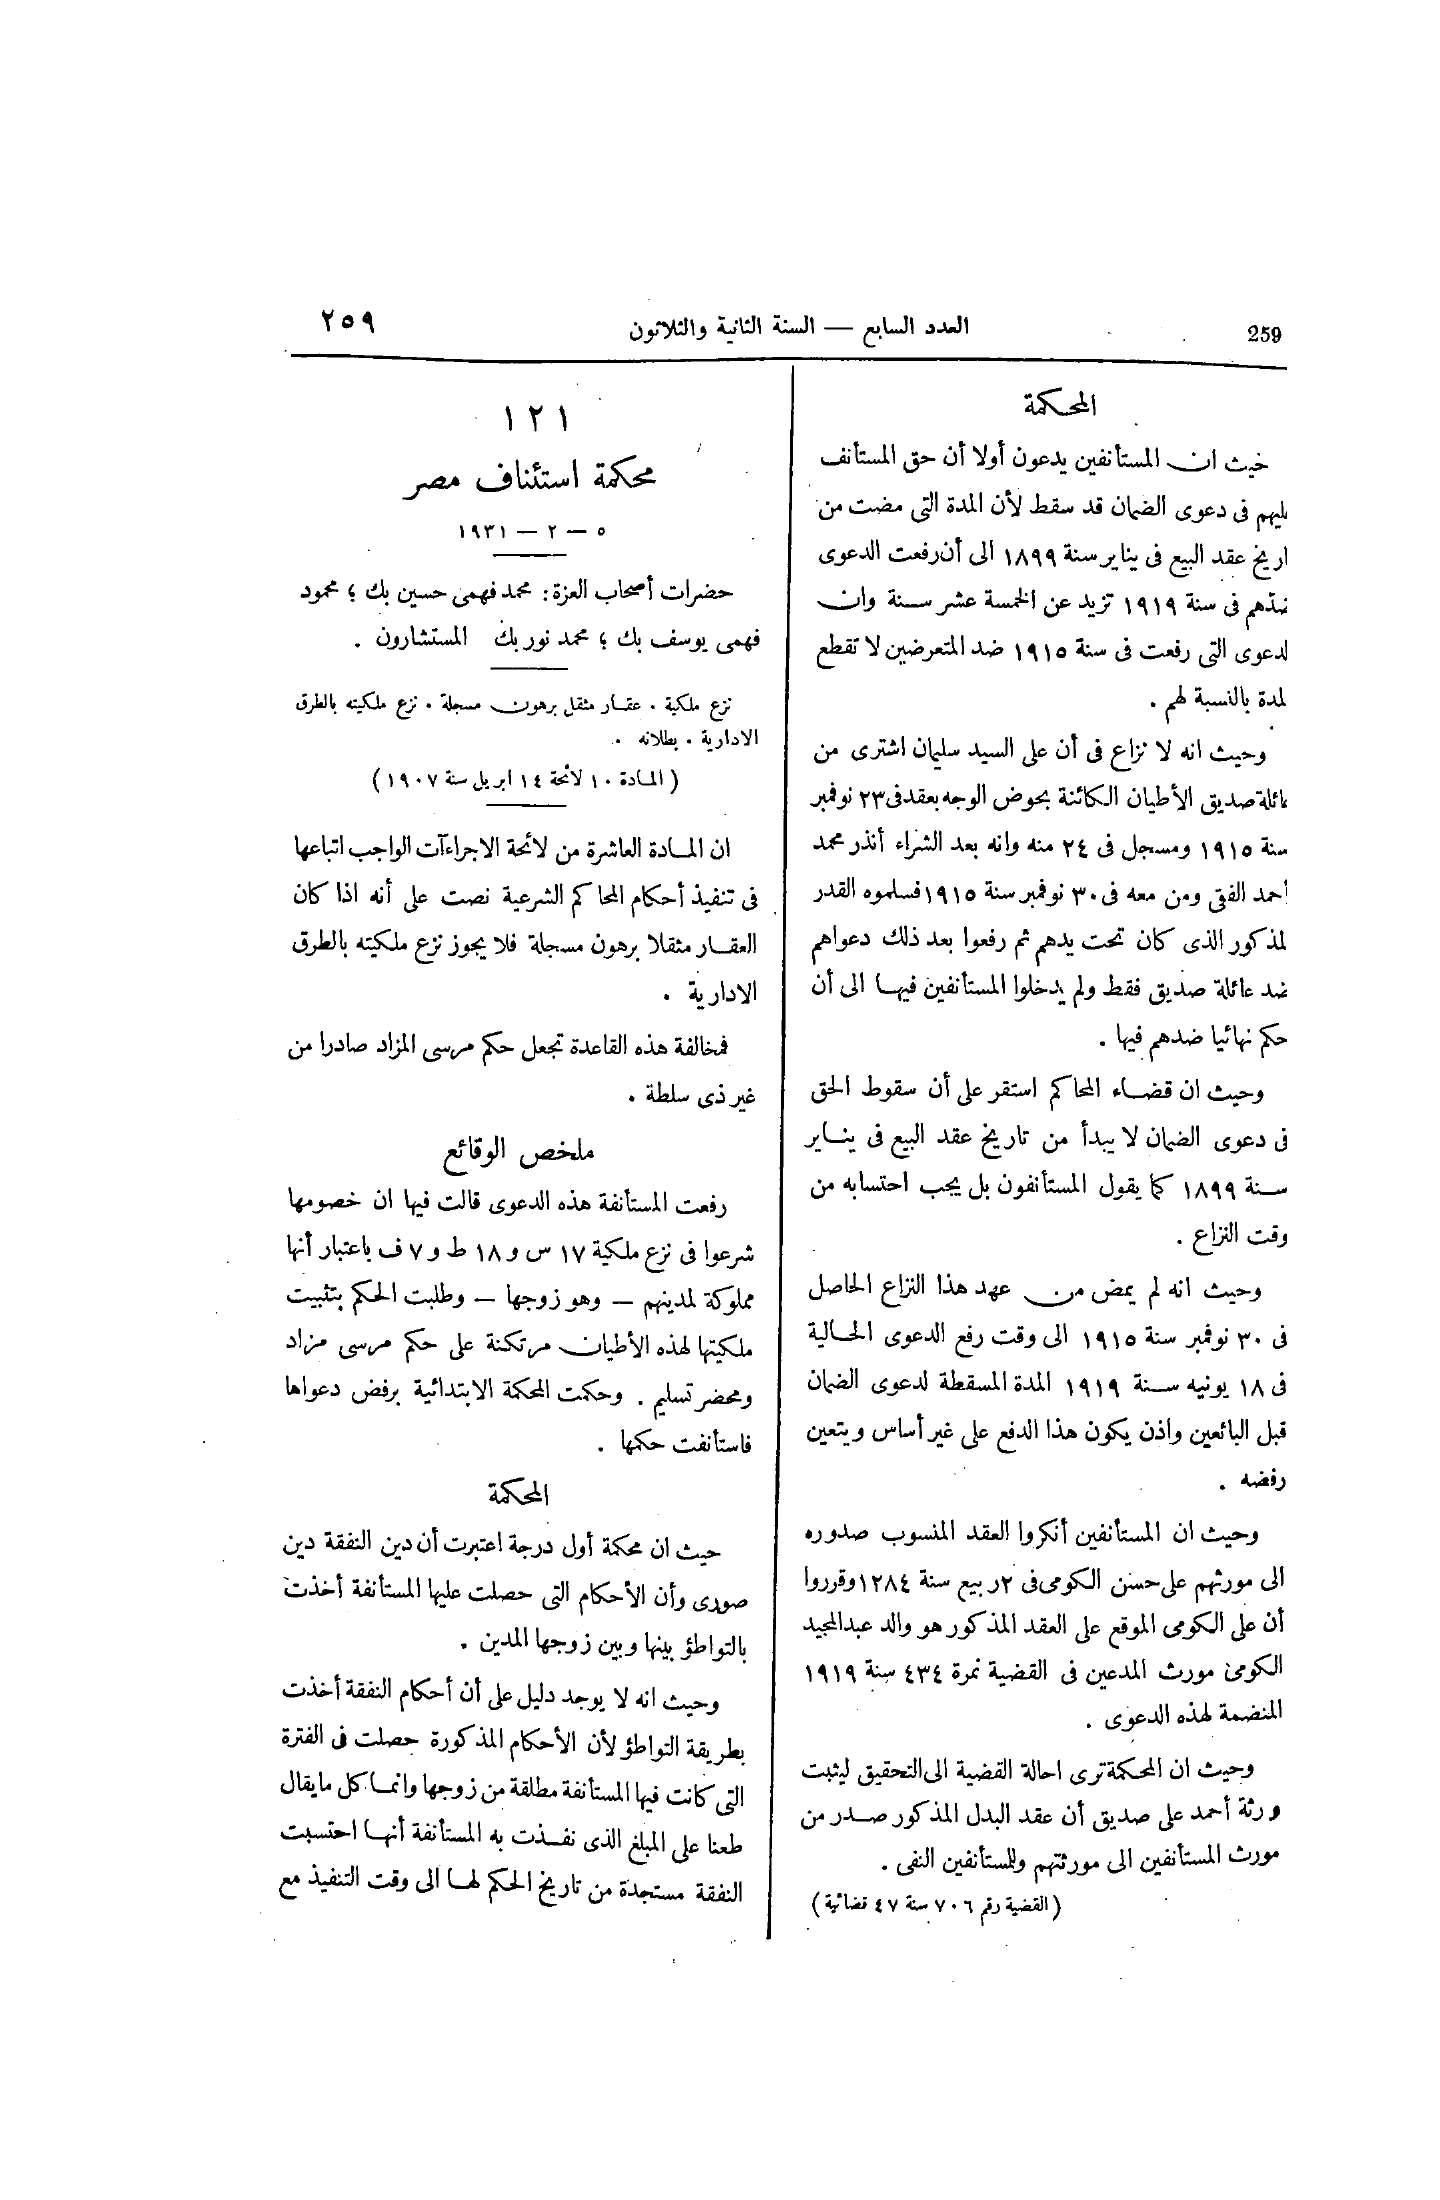 259
العدد السابع — السنة الثانية والثلاثون
٢٥٩
المحكمة
حيث ان المستأنفين يدعون أولا أن حق المستأنف
ليهم فى دعوى الضمان قد سقط لأن المدة التى مضت من
اريخ عقد البيع فى يناير سنة ١٨٩٩ الى أن رفعت الدعوى
ضدهم فى سنة ١٩١٩ تزيد عن الخمسة عشر سنة وان
لدعوى التى رفعت فى سنة ١٩١٥ ضد المتعرضين لا تقطع
لمدة بالنسبة لهم .
وحيث انه لا نزاع فى أن على السيد سليمان اشترى من
عائلة صديق الأطيان الكائنة بحوض الوجه بعقد فى ٢٣ نوفمبر
سنة ١٩١٥ ومسجل فى ٢٤ منه وانه بعد الشراء أنذر محمد
أحمد الفقى ومن معه فى ٣٠ نوفمبر سنة ١٩١٥ فسلموه القدر
لمذكور الذى كان تحت يدهم ثم رفعوا بعد ذلك دعواهم
ضد عائلة صديق فقط ولم يدخلوا المستأنفين فيها الى أن
حكم نهائيا ضدهم فيها .
وحيث ان قضاء المحاكم استقر على أن سقوط الحق
فى دعوى الضمان لا يبدأ من تاريخ عقد البيع فى يناير
سنة ١٨٩٩ كما يقول المستأنفون بل يجب احتسابه من
وقت النزاع .
وحيث انه لم يمض من عهد هذا النزاع الحاصل
فى ٣٠ نوفمبر سنة ١٩١٥ الى وقت رفع الدعوى الحالية
فى ١٨ يونيه سنة ١٩١٩ المدة المسقطة لدعوى الضمان
قبل البائعين واذن يكون هذا الدفع على غير أساس ويتعين
رفضه .
وحيث ان المستأنفين أنكروا العقد المنسوب صدوره
الى مورثهم على حسن الكومى فى ٢ ربيع سنة ١٢٨٤ وقرروا
أن على الكومى الموقع على العقد المذكور هو والد عبد المجيد
الكومى مورث المدعين فى القضية نمرة ٤٣٤ سنة ١٩١٩
المنضمة لهذه الدعوى .
وحيث ان المحكمة ترى احالة القضية الى التحقيق ليثبت
ورثة أحمد على صديق أن عقد البدل المذكور صدر من
مورث المستأنفين الى مورثتهم وللمستأنفين النفى .
( القضية رقم ٧٠٦ سنة ٤٧ قضائية )
١٢١
محكمة استئناف مصر
٥ — ٢ — ١٩٣١
حضرات أصحاب العزة : محمد فهمى حسين بك ؛ محمود
فهمى يوسف بك ؛ محمد نور بك المستشارون .
نزع ملكية . عقار مثقل برهون مسجلة . نزع ملكيته بالطرق
الادارية . بطلانه .
( المادة ١٠ لائحة ١٤ ابريل سنة ١٩٠٧ )
ان المادة العاشرة من لائحة الاجراءآت الواجب اتباعها
فى تنفيذ أحكام المحاكم الشرعية نصت على أنه اذا كان
العقار مثقلا برهون مسجلة فلا يجوز نزع ملكيته بالطرق
الادارية .
فمخالفة هذه القاعدة تجعل حكم مرسى المزاد صادرا من
غير ذى سلطة .
ملخص الوقائع
رفعت المستأنفة هذه الدعوى قالت فيها ان خصومها
شرعوا فى نزع ملكية ١٧ س و ١٨ ط و ٧ ف باعتبار أنها
مملوكة لمدينهم — وهو زوجها — وطلبت الحكم بتثبيت
ملكيتها لهذه الأطيان مرتكنة على حكم مرسى مزاد
ومحضر تسليم . وحكمت المحكمة الابتدائية برفض دعواها
فاستأنفت حكمها .
المحكمة
حيث ان محكمة أول درجة اعتبرت أن دين النفقة دين
صورى وأن الأحكام التى حصلت عليها المستأنفة أخذت
بالتواطؤ بينها وبين زوجها المدين .
وحيث انه لا يوجد دليل على أن أحكام النفقة أخذت
بطريقة التواطؤ لأن الأحكام المذكورة حصلت فى الفترة
التى كانت فيها المستأنفة مطلقة من زوجها وانما كل مايقال
طعنا على المبلغ الذى نفذت به المستأنفة أنها احتسبت
النفقة مستجدة من تاريخ الحكم لها الى وقت التنفيذ مع